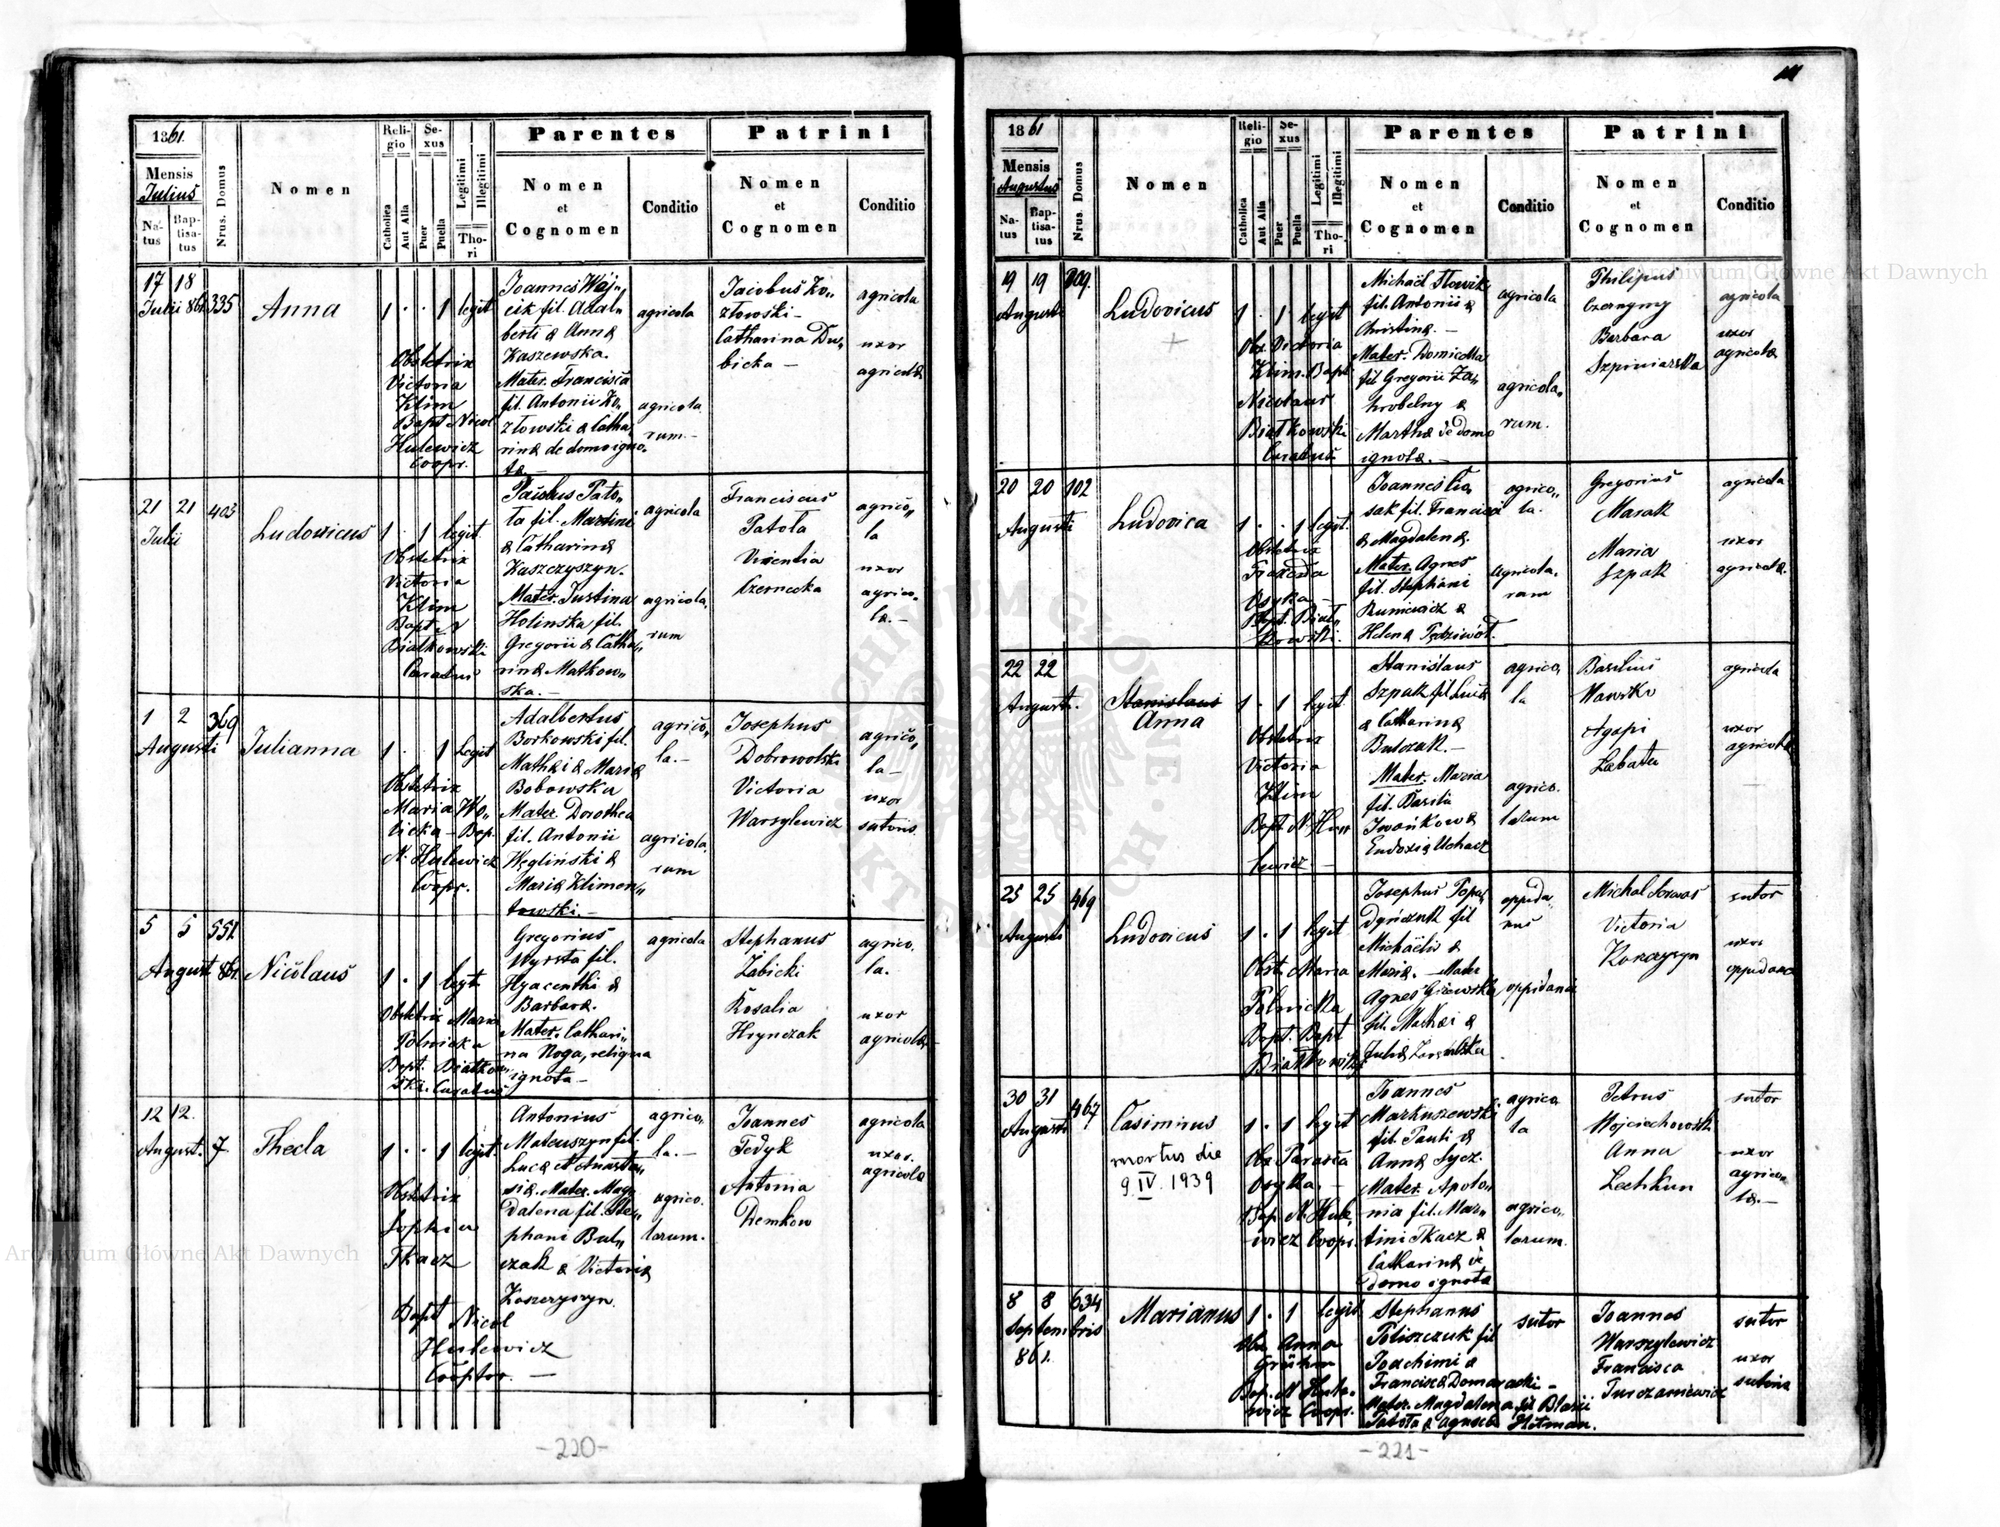 1861.
Mensis
Julius
Na-
tus
Bap-
tisa-
tus
Nrus. Domus
Nomen
Reli-
gio
Catholica
Aut Alia
Se-
xus
Puer
Puella
Legitimi
Illegitimi
Tho-
ri
Parentes
Nomen
et
Cognomen
Conditio
Patrini
Nomen
et
Cognomen
Conditio
17 18
Julii 861 335
Anna
1 . . 1 legit
Obstetrix
Victoria
Klim
Bapt Nicol
Hulewicz
Coopr.
Joannes Wój„
cik fil. Adal„
berti & Annæ
Kaszewska.
Mater. Francisca
fil. Antonii Ko„
złowski & Catha„
rinæ de domo igno„
tæ.—
agricola
agricola
rum.—
Jacobus Ko„
złowski —
Catharina Du„
bicka —
agricola
uxor
agricolæ
21 21 403
Julii
Ludovicus
1 . 1 legit.
Obstetrix
Victoria
Klim
Bapt. N
Białkowski
Curatus
Paulus Pato„
ła fil. Martini
& Catharinæ
Kaszczyszyn.
Mater. Justina
Holinska fil.
Gregorii & Catha„
rinæ Matkow„
ska.—
agricola
agricola„
rum
Franciscus
Patoła
Vicentia
Czernecka
agrico„
la
uxor
agrico„
læ.—
1 2 369
Augusti
Julianna
1 . 1 Legit
Obstetrix
Maria Wo„
licka — Bap.
N. Hulewicz
Coopr.
Adalbertus
Borkowski fil.
Mathæi & Mariæ
Bobowska
Mater Dorothea
fil. Antonii
Węgliński &
Mariæ Klimon„
towski.—
agrico„
la.—
agricola„
rum
Josephus
Dobrowolski
Victoria
Warsylewicz
agrico„
la—
uxor
sutoris.
5 5 551
August 861.
Nicolaus
1 . 1 legit.
Obstetrix Maria
Polnicka
Bapt. Białkow„
ski. Curatus
Gregorius
Wyrsta fil.
Hyacenthi &
Barbaræ.
Mater. Cathari„
na Noga, reliqua
ignota —
agricola
Stephanus
Zabicki
Rosalia
Hrynczak
agrico.
la.
uxor
agricolæ—
12 12.
August. 7
Thecla
1 . . 1 legit.
Obstetrix
Sophia
Tkacz
Bapt Nicol
Hulewicz
Cooptor. —
Antonius
Mateuszyn fil.
Lucæ &
Mater. Mag„
dalena fil. Ste„
phani Bal„
czak & Victoriæ
Koszczyszyn.
agrico„
la.—
agrico.
larum.
Joannes
Fedyk
Antonia
Demkow
agricola
uxor.
agricolæ
-220-
1861
Mensis
Augustus
Na-
tus
Bap-
tisa-
tus
Nrus. Domus
Nomen
Reli-
gio
Catholica
Aut Alia
Se-
xus
Puer
Puella
Legitimi
Illegitimi
Tho-
ri
Parentes
Nomen
et
Cognomen
Conditio
Patrini
Nomen
et
Cognomen
Conditio
19 19
Augusti
Ludovicus
1 . 1 legit
Obx. Victoria
Klim. Bapt
Nicolaus
Białkowski
Curatus
Michaël Słowik
fil. Antonii &
Christinæ.—
Mater. Domicella
fil Gregorii Za„
hrobelny &
Marthæ de domo
ignotæ.—
agricola
agricola„
rum.
Philipus
Czaryny
Barbara
Szpiniarska
agricola
uxor
agricolæ
20 20 102
Augusti
Ludovica
1 . . 1 legit.
Obstetrix
Paraxeda
Osyka —
Bapt. Biał„
kowski.
Joannes
fil. Francisci
& Magdalenæ.
Mater Agnes
fil. Stephani
Runiewicz &
Helenæ Pędziwól.
agrico„
la.
agricola„
rum
Gregorius
Masak
Maria
Szpak
agricola
uxor
agricolæ.
22 22
Augusti.
Stanislaus
Anna
1 . 1 legit.
Obstetrix
Victoria
Klim
Bapt N. Hu„
lewicz —
Stanislaus
Szpak fil Lucæ
& Catharinæ
Balczak.—
Mater. Maria
fil. Basilii
Iwańkow &
Eudoxiæ Uchacz
agrico„
la
agrico.
larum
Basilius
Wawrko
Agapi
Łabata
agricola
uxor
agricolæ
25 25 469
Augusti
Ludovicus
1 . 1 legit
Obst. Maria
Polnicka
Bapt. Bapt
Białkowski
Josephus Popa„
dyńczuk fil
Michaëlis &
Mariæ.— Mater
Agnes Gizewska
fil. Mathæi &
Juliæ
oppida„
nus
oppidanæ
Michal
Victoria
Konczyszyn
sutor
uxor
oppidana
30 31 467
Augusti
Casimirus
mortus die
9.IV.1939
1 . 1 legit
Obx Parascia
Osyka.—
Bap. N. Hule„
wicz Coopr.
Joannes
Markuszewski
fil. Pauli &
Annæ Sycz.
Mater. Apolo„
nia fil. Mar„
tini Tkacz &
Catharinæ de
domo ignota
agrico
la
agrico„
larum.
Petrus
Wojciechowski
Anna
Lechkun
sutor
uxor
agrico„
læ.—
8 8 634
Septembris
861.
Marianus
1 . 1 legit
Obx. Anna
Grühen
Bap. N Hule„
wicz Coopr.
Stephanus
Poliszczuk fil
Joachimi &
Franciscæ Domaracki —
Mater. Magdalena fil Blasii
Patoła & Agnetis Hetman.
sutor
Joannes
Warszylewicz
Francisca
Turczaniewicz
sutor
uxor
sutoris
-221-
Archiwum Główne Akt Dawnych
Archiwum Główne Akt Dawnych
ARCHIWUM GŁÓWNE AKT DAWNYCH